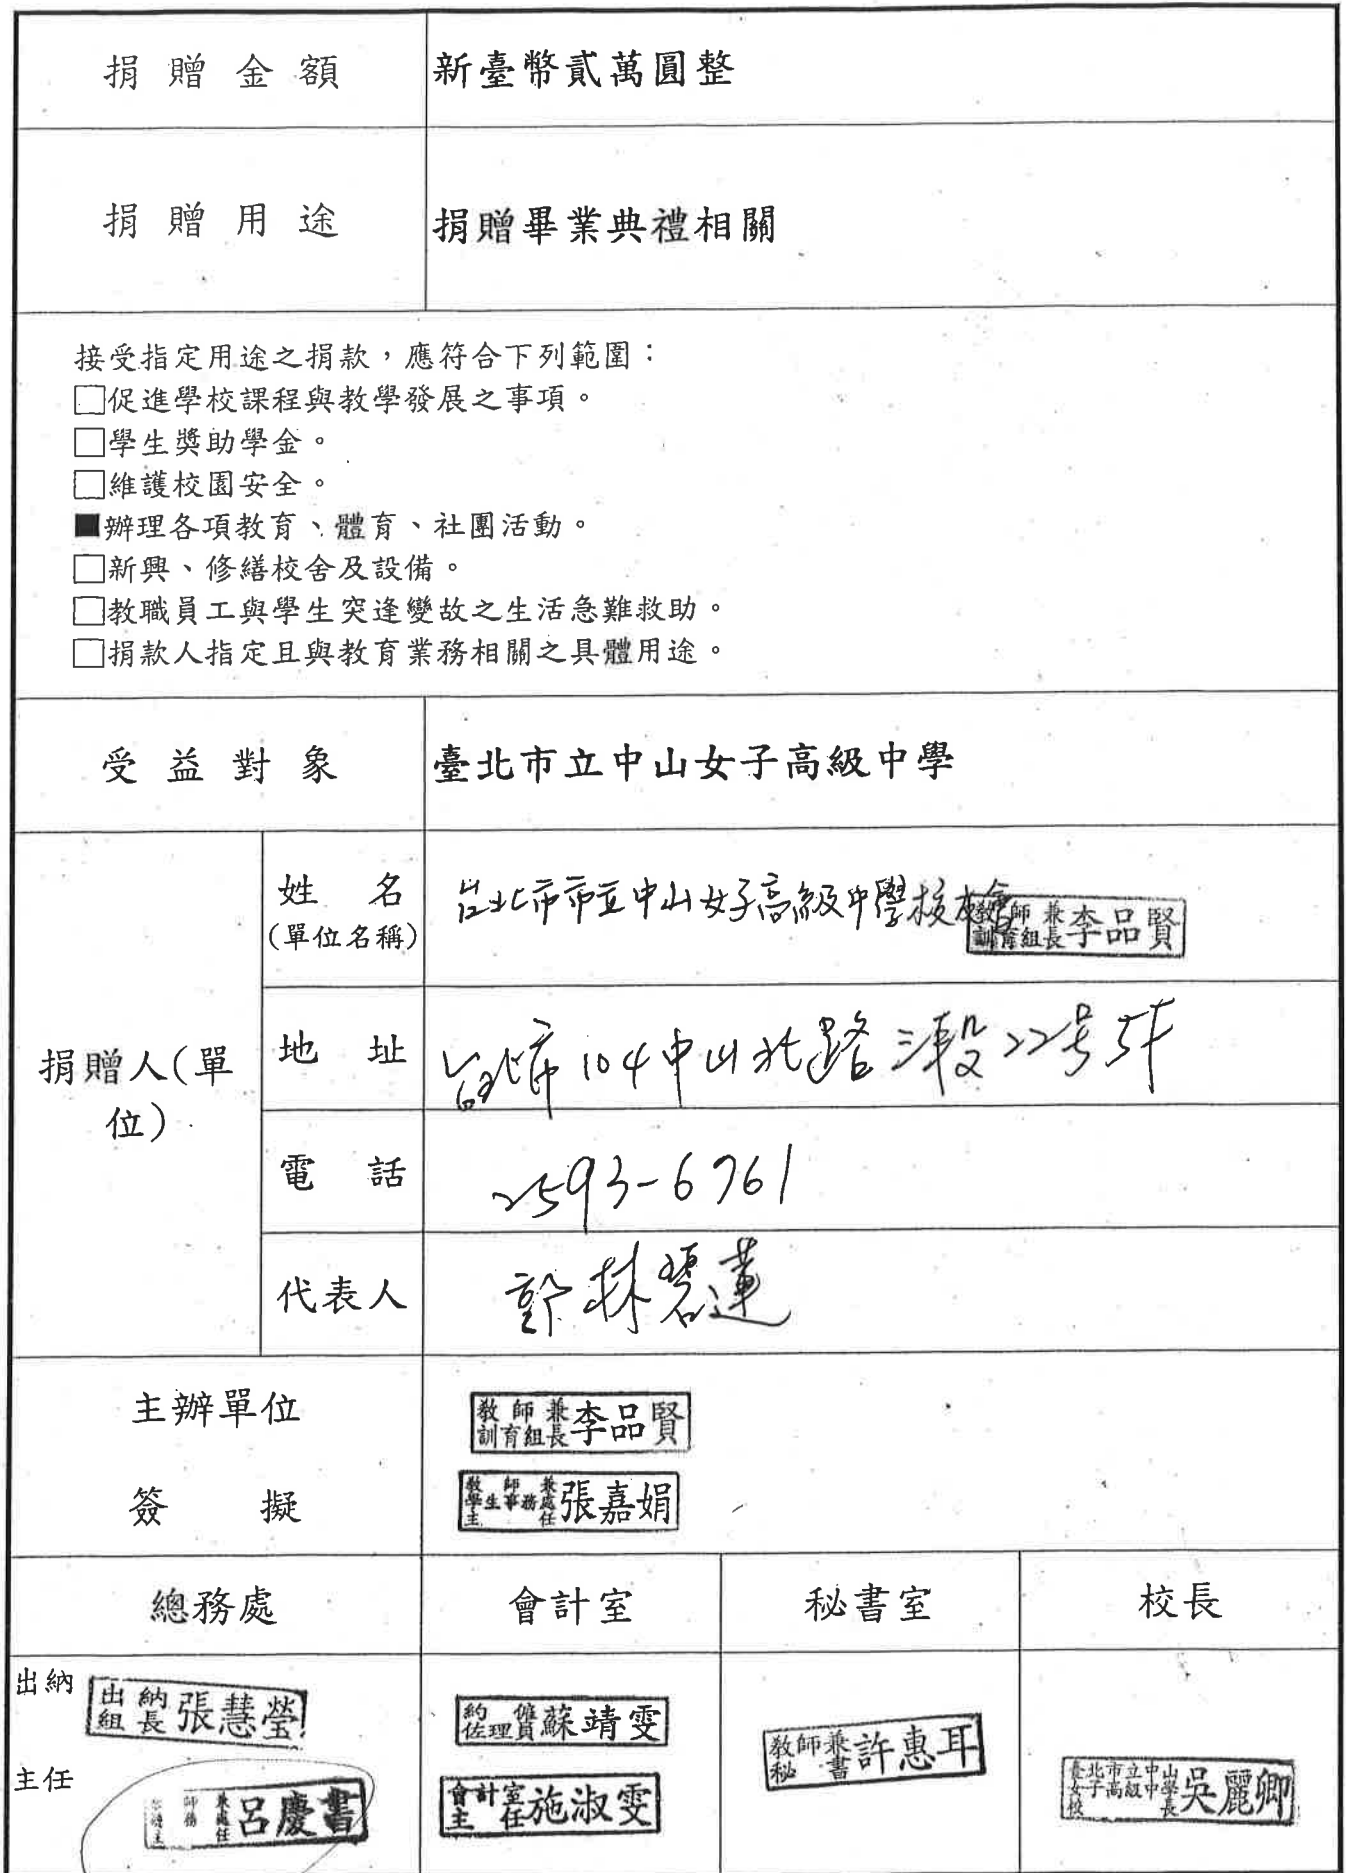 捐贈金額 新臺幣貳萬圓整
捐贈用途 捐贈畢業典禮相關
接受指定用途之捐款，應符合下列範圍：
□促進學校課程與教學發展之事項。
□學生獎助學金。
□維護校園安全。
■辦理各項教育、體育、社團活動。
□新興、修繕校舍及設備。
□教職員工與學生突逢變故之生活急難救助。
□捐款人指定且與教育業務相關之具體用途。
受益對象 臺北市立中山女子高級中學
捐贈人(單
位)
姓名
(單位名稱)
台北市市立中山女子高級中學校友會
教師兼
訓育組長 李品賢
地址 台北市104中山北路三段22号5F
電話 2593-6761
代表人 林碧蓮
主辦單位
簽擬
教師兼
訓育組長 李品賢
教師兼
學生事務處
主任 張嘉娟
總務處 會計室 秘書室 校長
出納
出納
組長 張慧瑩
主任
師兼
務處
主任 呂慶書
約僱
佐理員 蘇靖雯
會計室
主任 施淑雯
教師兼
秘書 許惠耳
臺北市立中山
女子高級中學
校長 吳麗卿